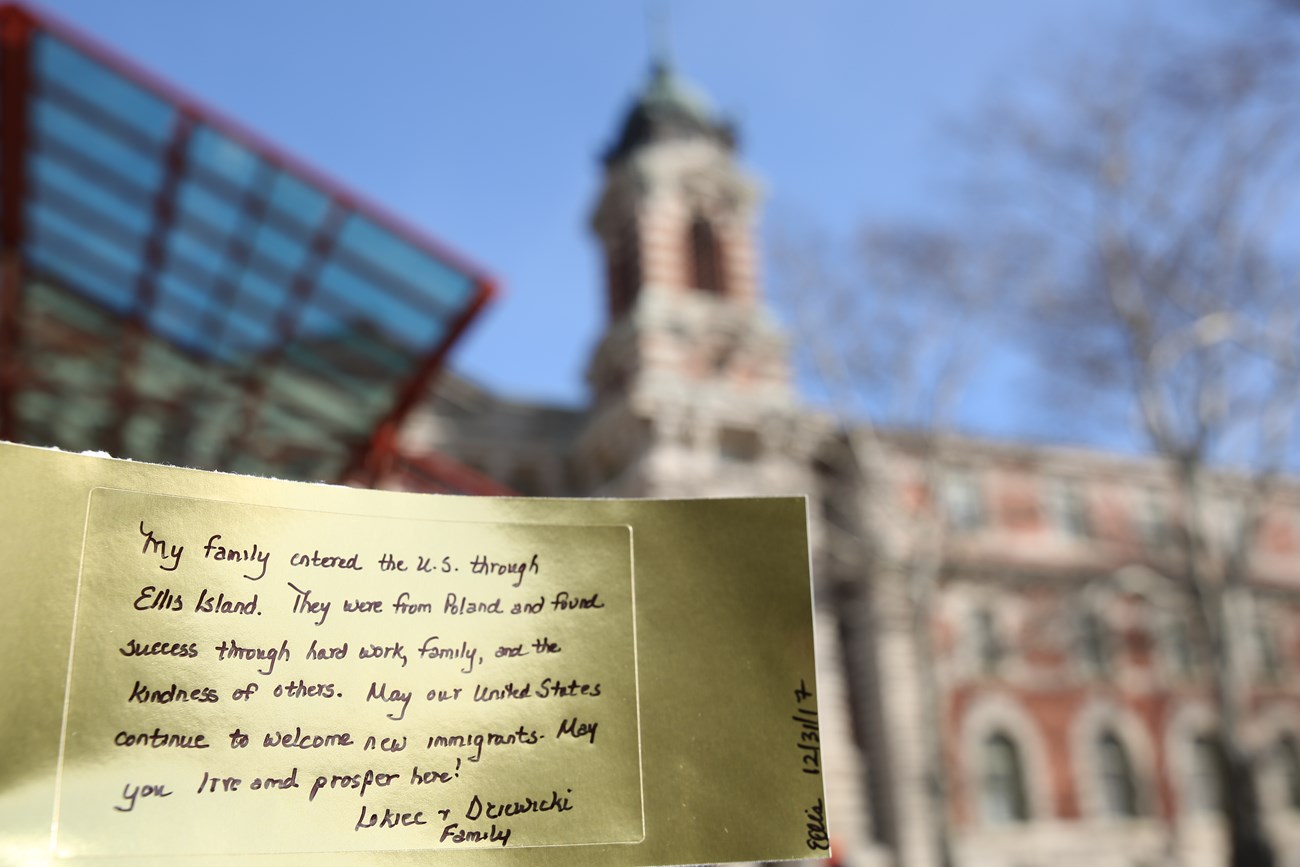 My family entered the U.S. through
Ellis Island. They were from Poland and found
success through hard work, family, and the
kindness of others. May our United States
continue to welcome new immigrants. May
you live and prosper here!
Lokiec + Dziewicki
Family
Ellis 12/31/17